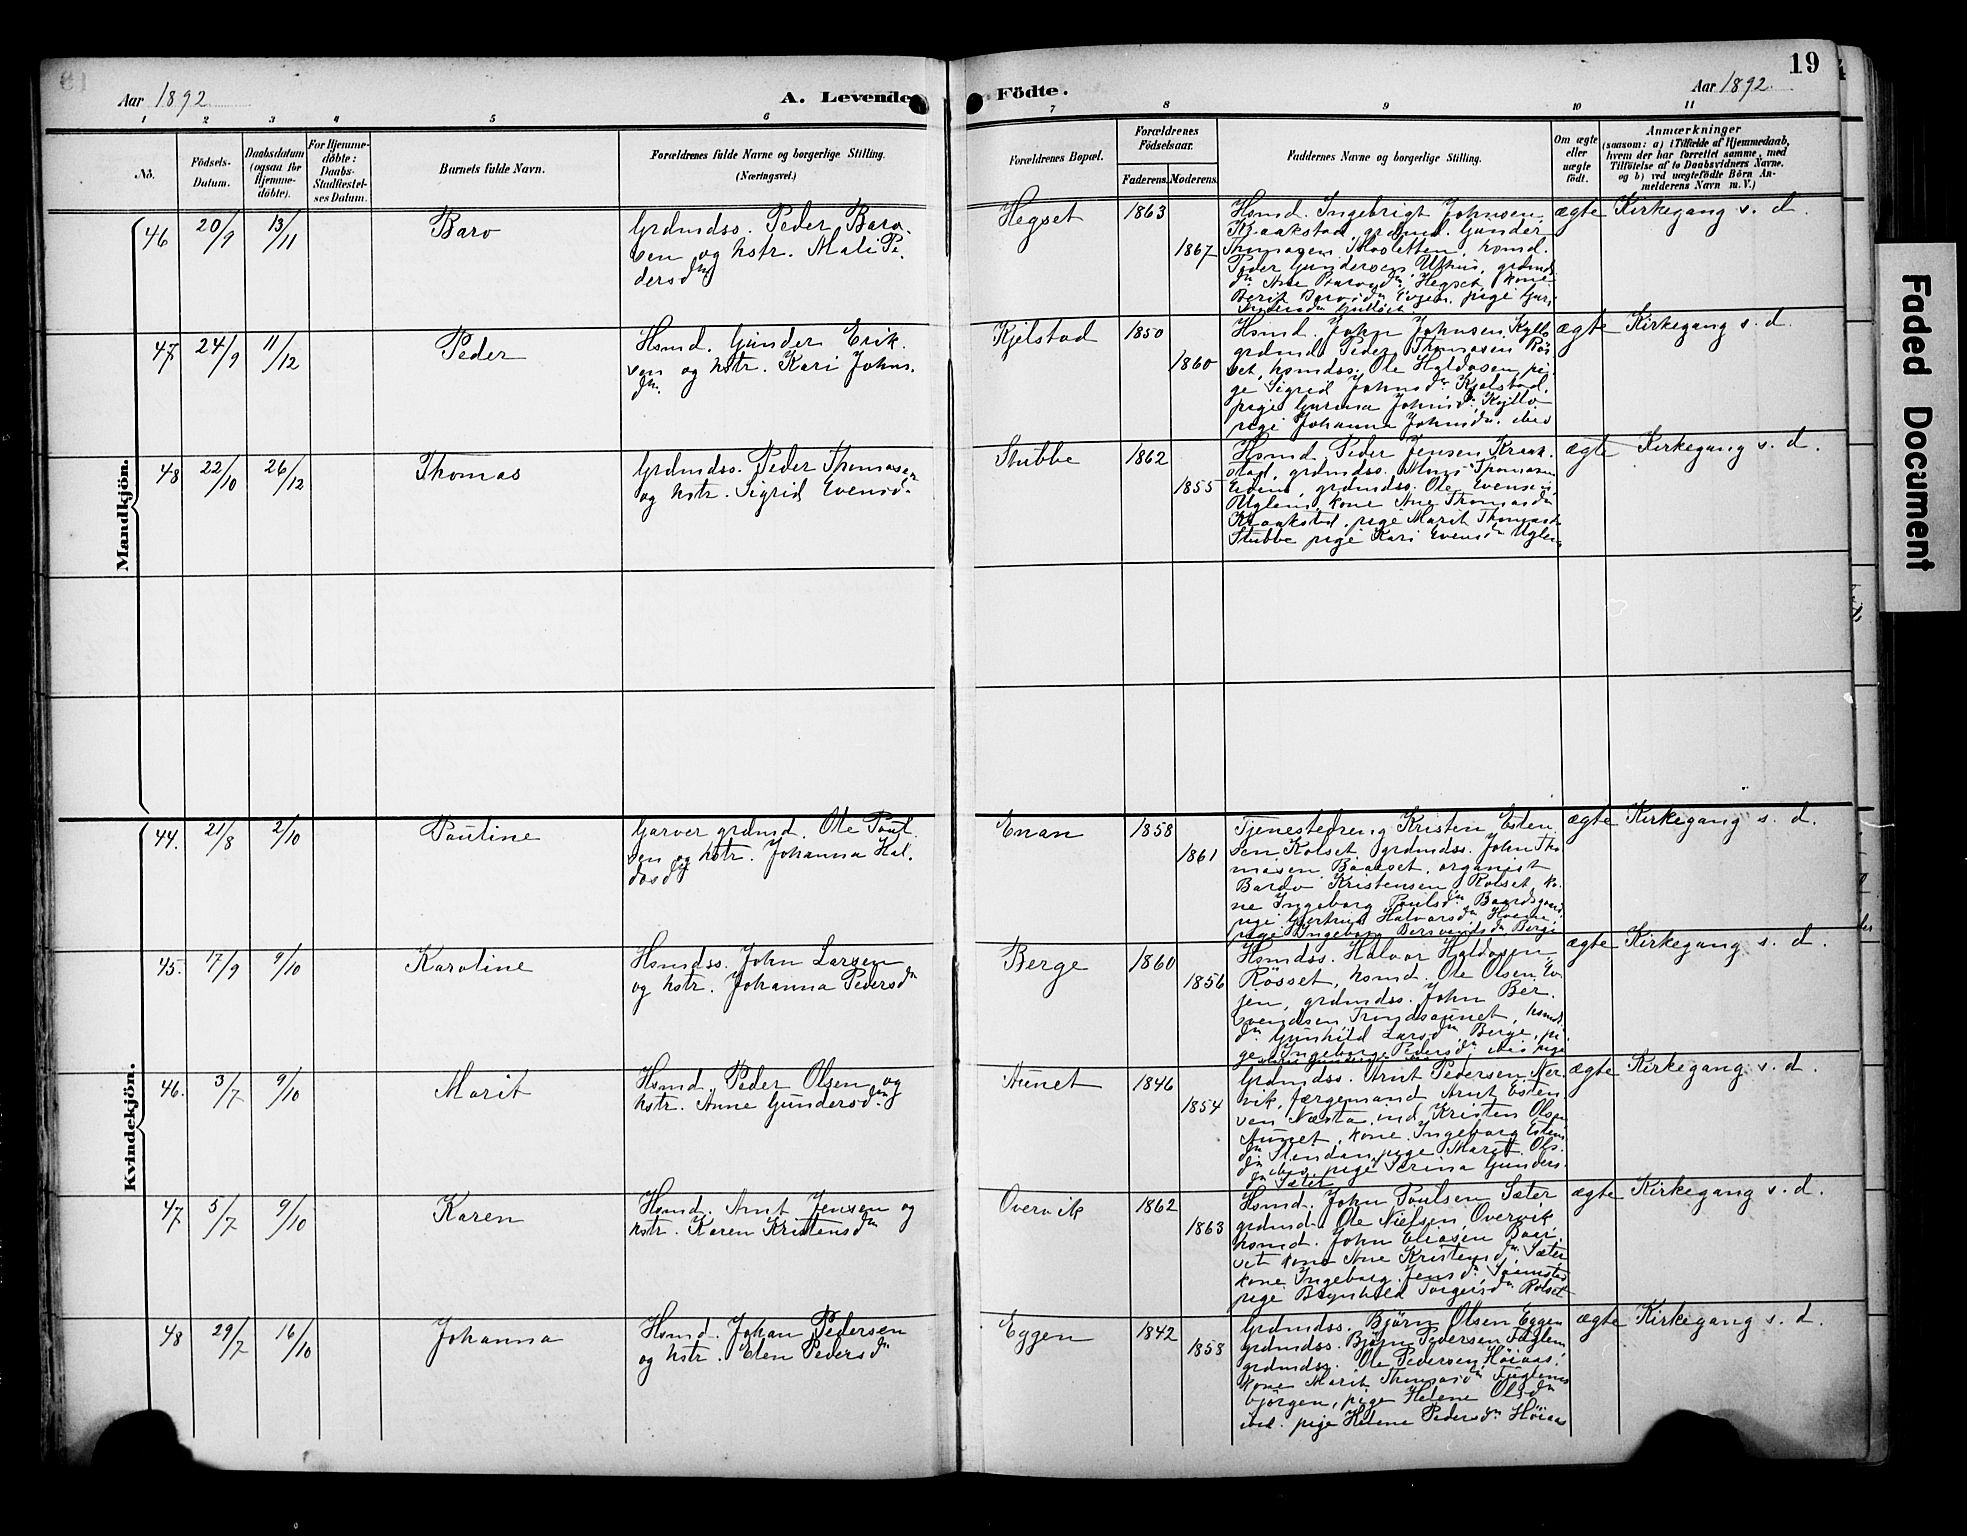 19
Aar 1892
A. Levende Födte.
Aar 1892
1 2 3 4 5 6 7 8 9 10 11
No.
Födsels-
Datum.
Daabsdatum
(ogsaa for
Hjemme-
döbte).
For Hjemme-
döbte:
Daabs-
Stadfæstel-
ses Datum.
Barnets fulde Navn.
Forældrenes fulde Navne og borgerlige Stilling.
(Næringsvei.)
Forældrenes Bopæl.
Forældrenes
Födselsaar.
Faderens. Moderens.
Faddernes Navne og borgerlige Stilling.
Om ægte
eller
uægte
födt.
Anmærkninger
(saasom: a) i Tilfælde af Hjemmedaab,
hvem der har forrettet samme, med
Tilföielse af to Daabsvidners Navne.
og b) ved uægtefödte Börn An-
melderens Navn m. V.)
Mandkjön.
46 20/9 13/11
Baro
Grdmdss. Peder Baro-
sen og hstr. Mali Pe-
dersdn
Hegset
1863
1867
Hsmd. Ingebrigt Johnsen
Kraakstad, grdmd. Gunder
Thomasen Mosletten, hsmd.
Peder Gundersen Ufhus, grdmds
dn Ane Barosdn Hegset, kone
Berit Barosdn Evjen, pige Gur.
ægte
Kirkegang s. d.
47 24/9 11/12
Peder
Hsmd. Gunder Erik-
sen og hstr. Kari Johns.
dn.
Kjelstad
1850
1860
Hsmd. John Johnsen Kyllo
grdmd. Peder Thomasen Rös
set, hsmdss. Ole Haldosen, pi
ge Sigrid Johnsdn Kjelstad,
pige Gurina Johnsdn Kyllo
pige Johanna Johnsdn. ibid
ægte
Kirkegang s. d.
48 22/10 26/12
Thomas
Grdmdss. Peder Thomasen
og hstr. Sigrid Evensdn.
Stubbe
1862
1855
Hsmd. Peder Jensen Kraak-
stad, grdmdss. Mons Thomasen
Eidem, grdmdss. Ole Evensen
Uglem, kone Ane Thomasdn
Kraakstad, pige Marit Thomasdn
Stubbe pige Kari Evensdn Uglem
ægte
Kirkegang s. d.
Kvindekjön.
44. 21/8 2/10
Pauline
Garver grdmd. Ole Poul-
sen og hstr. Johanna Hal-
dosdn
Enan
1858
1861
Tjenestedreng Kristen Esten
sen Rolset, grdmdss. John Tho
masen Baarset, organist
Bardo Kristensen Rolset, ko-
ne Ingeborg Poulsdn Baardsgaard,
pige Gjertrud Halvarsdn Hoem,
pige Ingeborg Bersvendsdn Berge
ægte
Kirkegang s. d.
45. 7/9 9/10
Karoline
Hsmdss. John Larsen
og hstr. Johanna Pedersdn
Berge
1860
1856
Hsmdss. Halvor Haldosen
Rösset, hsmd. Ole Olsen Ev-
jen, grdmdss. John Ber-
svendsen Trondsaunet, hsmds
dn Gunhild Larsdn Berge, pi-
ge Ingeborg Pedersdn ibid pige
ægte
Kirkegang s. d.
46. 3/7 9/10
Marit
Hsmd. Peder Olsen og
hstr. Anne Gundersdn
Aunet
1846
1854
Grdmdss. Arnt Pedersen Ner-
vik, færgemand Arnt Esten-
sen Næsta, ind. Kristen Olsen
Aunet, kone Ingeborg Estens
dn Slindan, pige Marit Ols-
dn ibid, pige Serina Gunders-
dn Sæter
ægte
Kirkegang s. d.
47 5/7 9/10
Karen
Hsmd. Arnt Jensen og
hstr. Karen Kristensdn
Overvik
1862
1863
Hsmd. John Poulsen Sæter
grdmd. Ole Nielsen Overvik
hsmd. John Eliasen Baar-
set kone Ane Kristensdn Sæter
kone Ingeborg Jensdn
pige Brynhild Torgersdn Rolset
ægte
Kirkegang s. d.
48 29/7 16/10
Johanna
Hsmd. Johan Pedersen
og hstr. Elen Pedersdn
Eggen
1842
1858
Grdmdss. Björn Olsen Eggen
grdmdss. Björn Pedersen Fuglem
grdmdss. Ole Pedersen Höiaas,
kone Marit Thomasdn Fuglem
björgen, pige Helene Olsdn
ibid. pige Helene Pedersdn Höiaas
ægte
Kirkegang s. d.
Faded Document